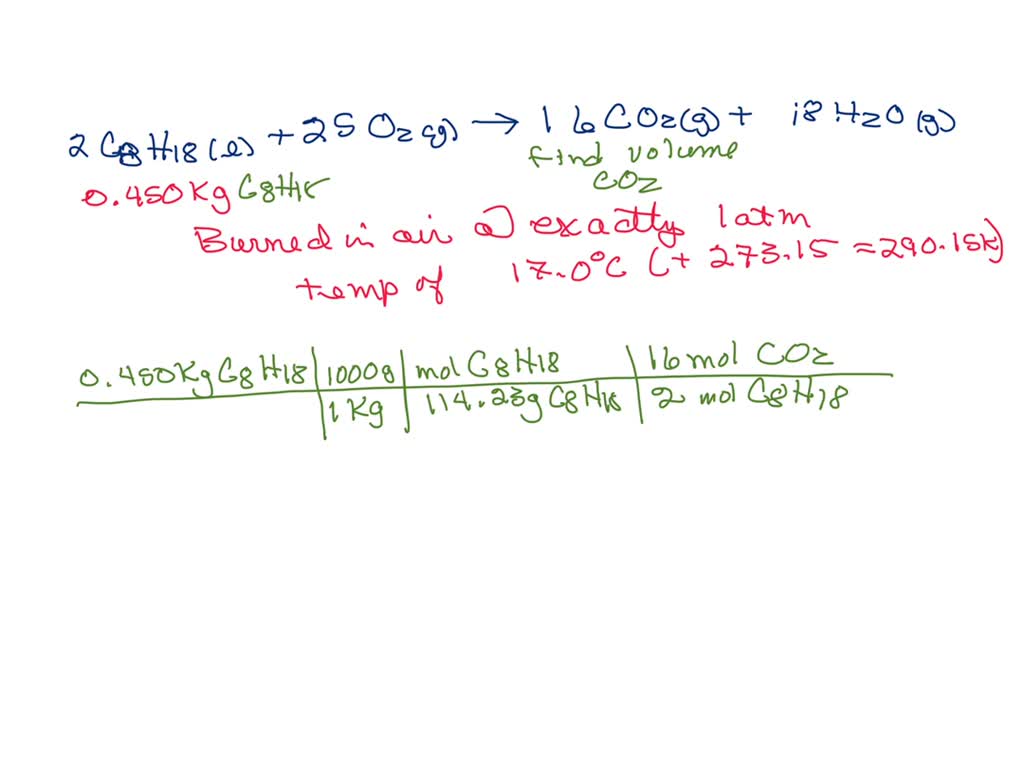 2 C8H18 (l) + 25 O2 (g) → 16 CO2 (g) + 18 H2O (g)
find volume
0.450 Kg C8H18 CO2
Burned in air @ exactly 1 atm
temp of 17.0°C (+ 273.15 = 290.15K)
0.450 Kg C8H18 | 1000g | mol C8H18 | 16 mol CO2
1 Kg | 114.23g C8H18 | 2 mol C8H18